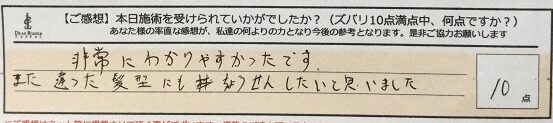 DEAR BARBER
【ご感想】本日施術を受けられていかがでしたか？（ズバリ10点満点中、何点ですか？）
あなた様の率直な感想が、私達の何よりの力となり今後の参考となります。是非ご協力お願いします
非常にわかりやすかったです。
また違った髪型にもちょうせんしたいと思いました
10点